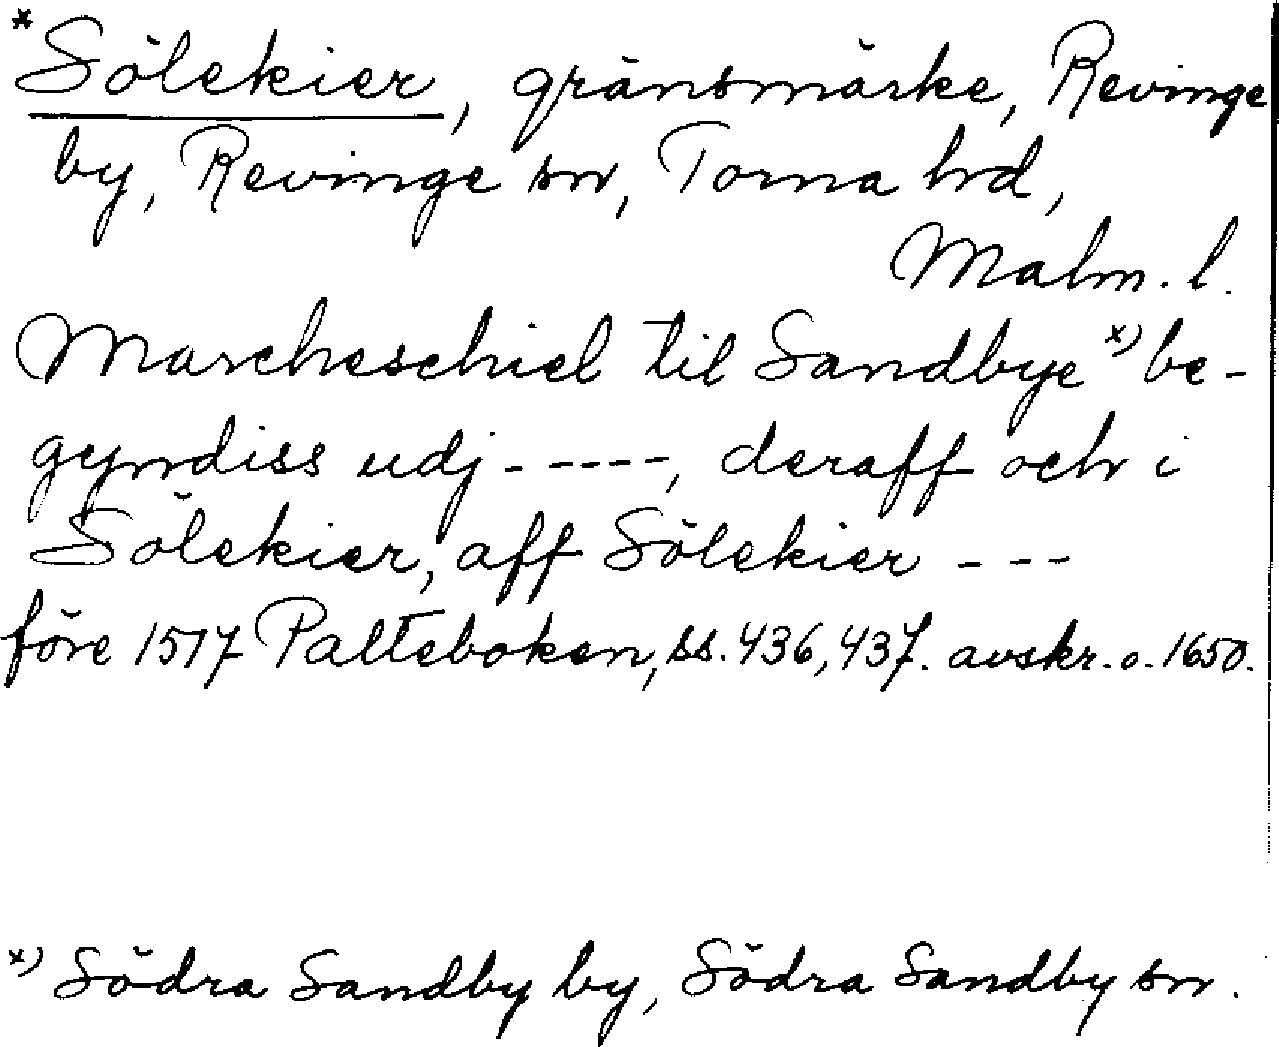 *Sölekier, gränsmärke, Revinge
by, Revinge sn, Torna hd,
Malm. l.
Marcheschiel til Sandbye x) be-
gyndiss udj - ----, deraff och i
Sölekier, aff Sölekier - - -
före 1517 Palteboken, ss. 436, 437. avskr. o. 1650.
x) Södra Sandby by, Södra Sandby sn.